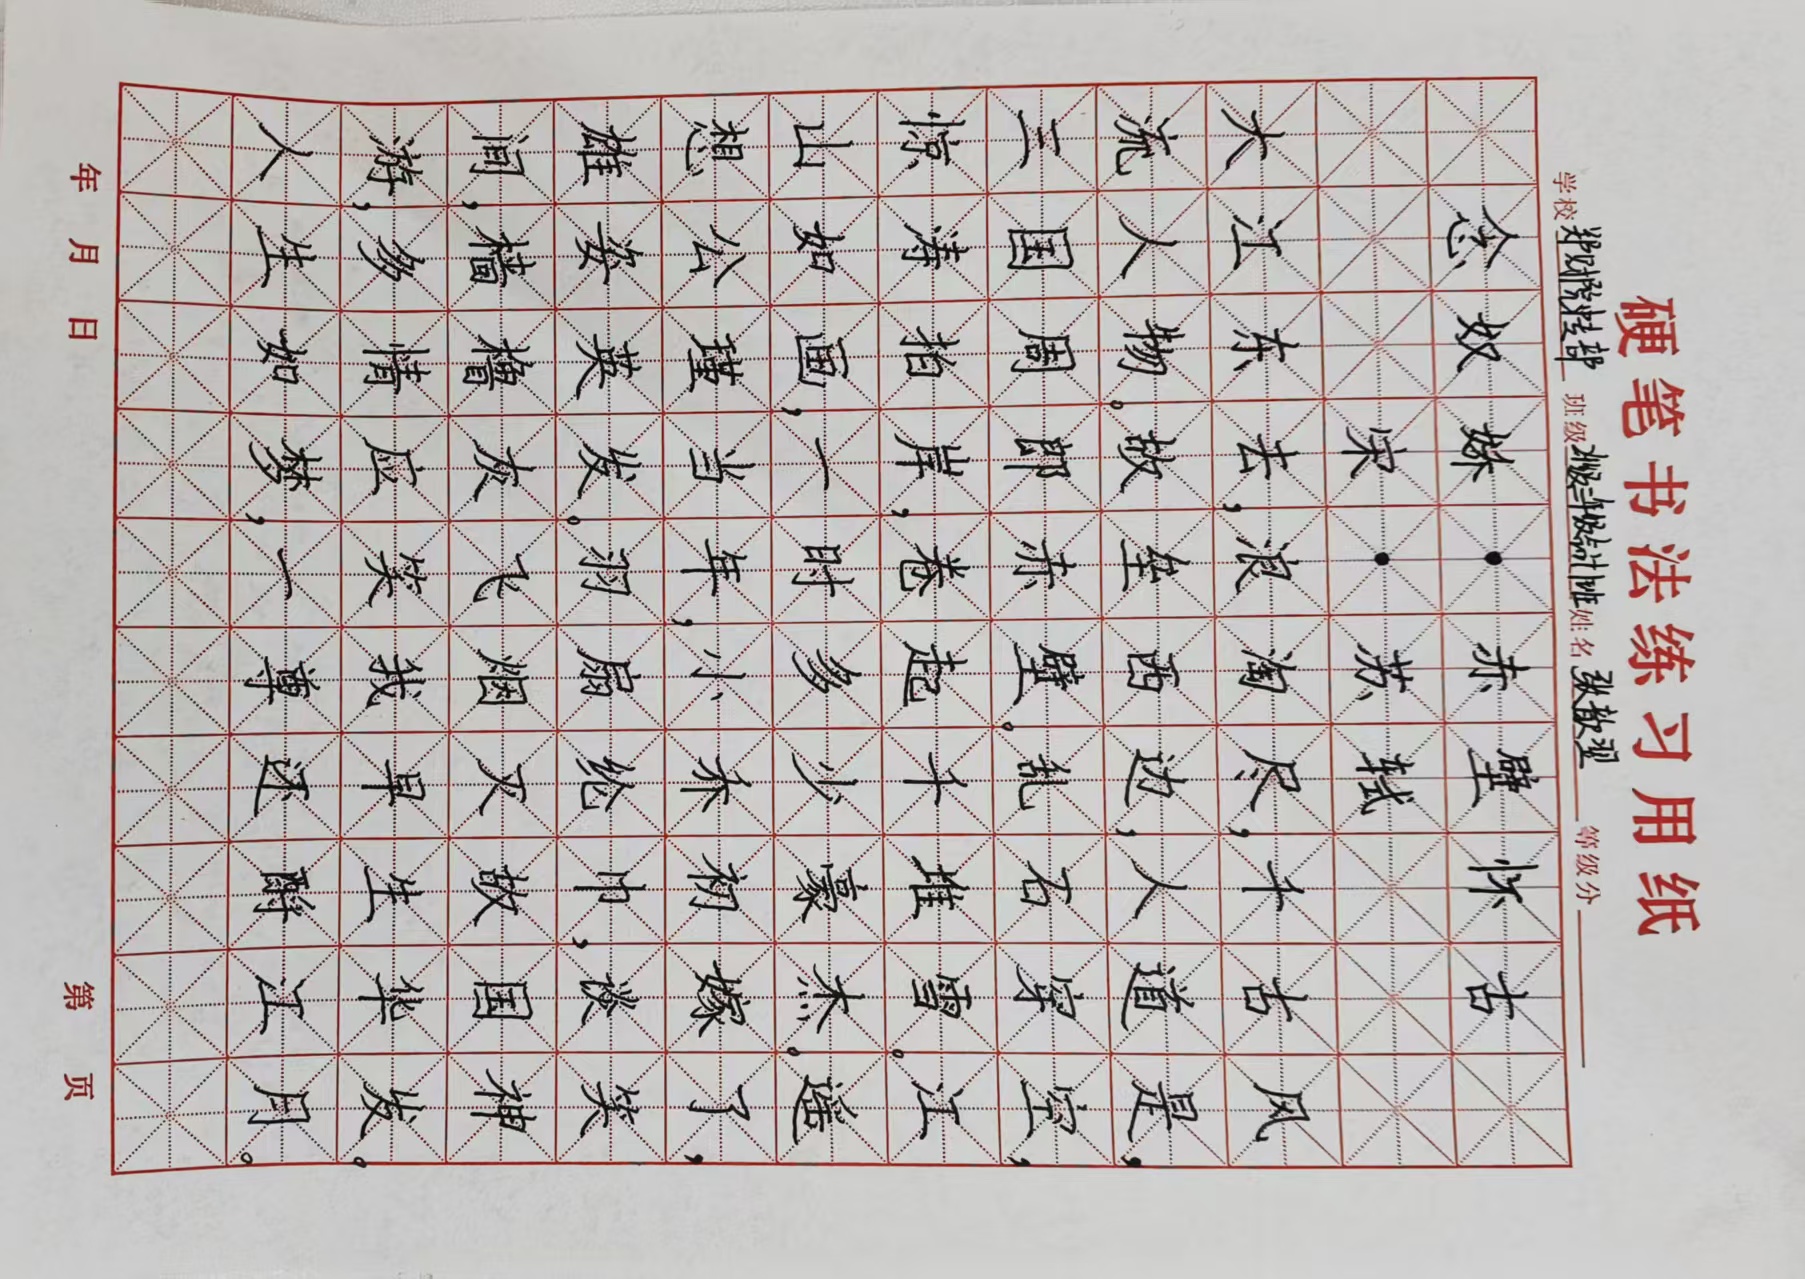 硬笔书法练习用纸
学校 班级 姓名 张 等级分
念奴娇·赤壁怀古
宋·苏轼
大江东去,浪淘尽,千古风
流人物。故垒西边,人道是,
三国周郎赤壁。乱石穿空,
惊涛拍岸,卷起千堆雪。江
山如画,一时多少豪杰。遥
想公瑾当年,小乔初嫁了,
雄姿英发。羽扇纶巾,谈笑
间,樯橹灰飞烟灭故国神
游,多情应笑我早生华发。
人生如梦,一尊还酹江月。
年 月 日 第 页